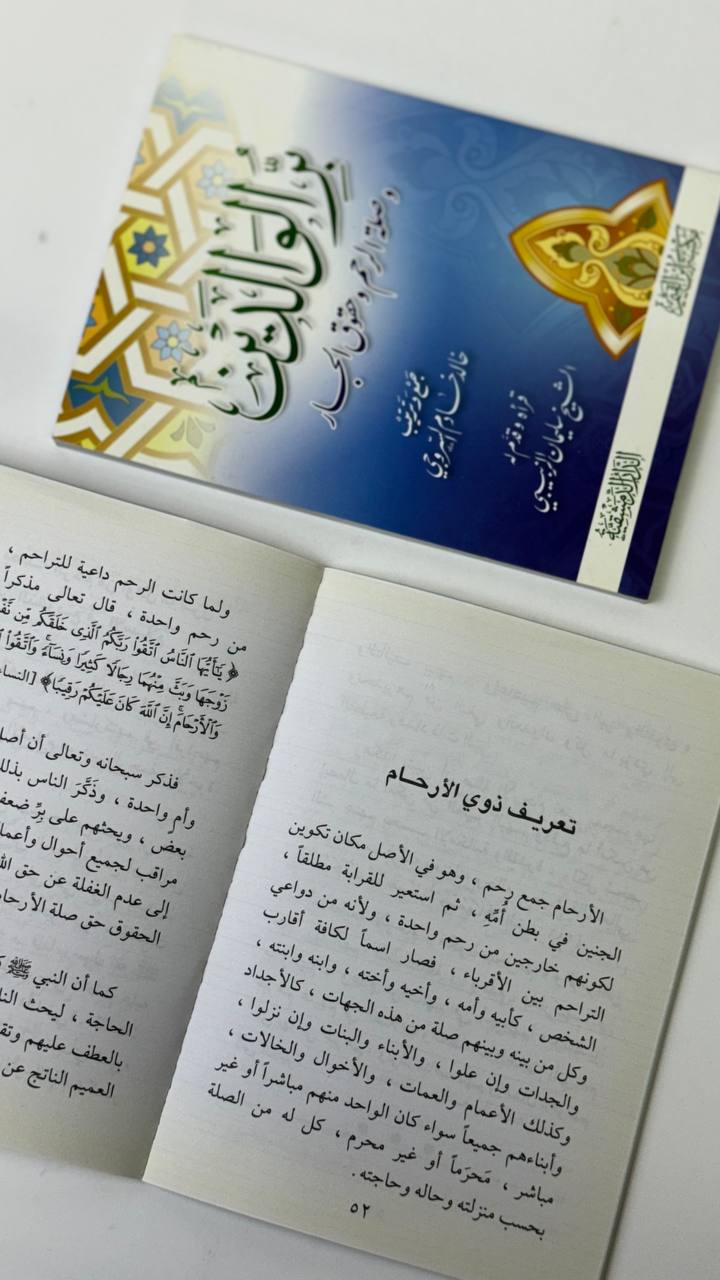 بر الوالدين
وصلة الرحم وحقوق الجار
جمع وترتيب
خالد خادم السروجي
قرأه وقدم له
الشيخ سليمان الزبيبي
الدار الدمشقية
تعريف ذوي الأرحام
الأرحام جمع رحم ، وهو في الأصل مكان تكوين
الجنين في بطن أُمِّهِ ، ثم استعير للقرابة مطلقاً ،
لكونهم خارجين من رحم واحدة ، ولأنه من دواعي
التراحم بين الأقرباء ، فصار اسماً لكافة أقارب
الشخص ، كأبيه وأمه ، وأخيه وأخته ، وابنه وابنته ،
وكل من بينه وبينهم صلة من هذه الجهات ، كالأجداد
والجدات وإن علوا ، والأبناء والبنات وإن نزلوا ،
وكذلك الأعمام والعمات ، والأخوال والخالات ،
وأبناءهم جميعاً سواء كان الواحد منهم مباشراً أو غير
مباشر ، مَحرَماً أو غير محرم ، كل له من الصلة
بحسب منزلته وحاله وحاجته .
٥٢
ولما كانت الرحم داعية للتراحم ،
من رحم واحدة ، قال تعالى مذكراً
﴿ يَٰٓأَيُّهَا ٱلنَّاسُ ٱتَّقُوا۟ رَبَّكُمُ ٱلَّذِى خَلَقَكُم مِّن
زَوْجَهَا وَبَثَّ مِنْهُمَا رِجَالًا كَثِيرًا وَنِسَآءً ۚ وَٱتَّقُوا۟
وَٱلْأَرْحَامَ ۚ إِنَّ ٱللَّهَ كَانَ عَلَيْكُمْ رَقِيبًا﴾
فذكر سبحانه وتعالى أن
وأم واحدة ، وذَكَّرَ الناس
بعض ، ويحثهم على برِّ
مراقب لجميع أحوال
إلى عدم الغفلة عن حق
الحقوق حق صلة
كما أن النبي ﷺ
الحاجة ، ليحث
بالعطف عليهم
العميم الناتج عن